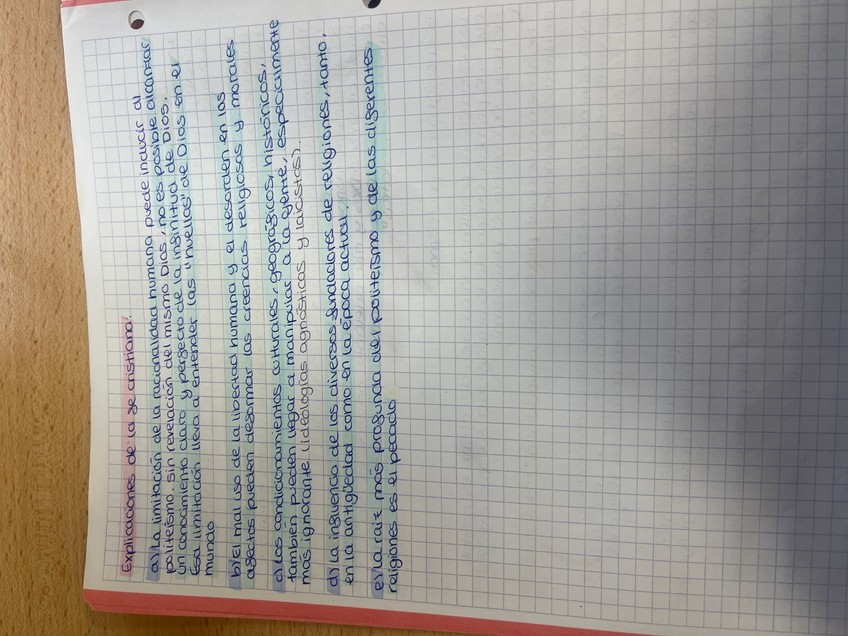 Explicaciones de la fe cristiana:
a) La limitación de la racionalidad humana puede inducir al
politeísmo. Sin revelación del mismo Dios, no es posible alcanzar
un conocimiento claro y perfecto de la infinitud de Dios.
Esa limitación lleva a entender las "huellas" de Dios en el
mundo
b) El mal uso de la libertad humana y el desorden en los
afectos pueden deformar las creencias religiosas y morales
c) Los condicionamientos culturales, geográficos, históricos,
también pueden llegar a manipular a la gente, especialmente
más ignorante (ideologías agnósticas y laicistas).
d) La influencia de los diversos fundadores de religiones, tanto,
en la antigüedad como en la época actual.
e) La raíz más profunda del politeísmo y de las diferentes
religiones es el pecado